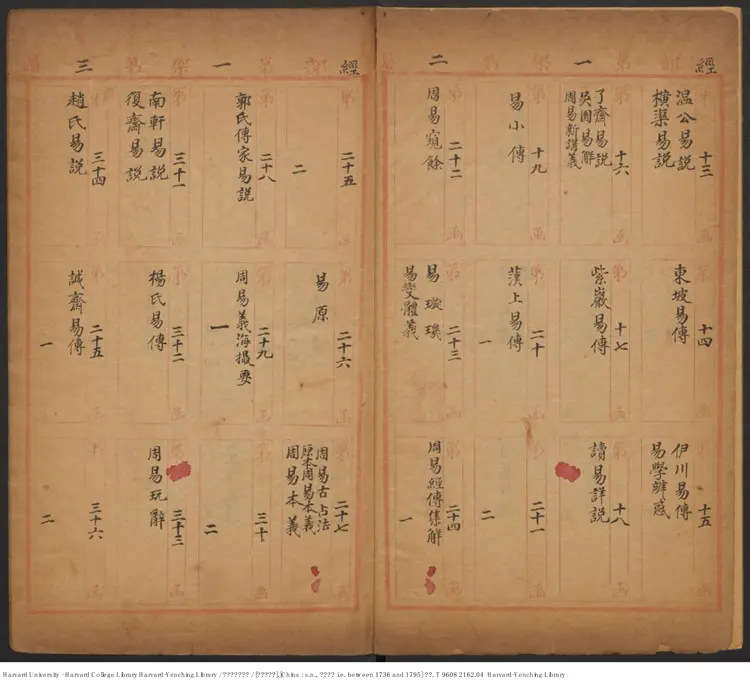 經部第一架第二
第十三函
温公易說
横渠易說
第十四函
東坡易傳
第十五函
伊川易傳
易學辨惑
第十六函
了齋易說
吳園易解
周易新講義
第十七函
紫巖易傳
第十八函
讀易詳說
第十九函
易小傳
第二十函
漢上易傳
一
第二十一函
二
第二十二函
周易窺餘
第二十三函
易璇璣
易變體義
第二十四函
周易經傳集解
一
經部第一架第三
第二十五函
二
第二十六函
易原
第二十七函
周易古占法
原本周易本義
周易本義
第二十八函
郭氏傳家易說
第二十九函
周易義海撮要
一
第三十函
二
第三十一函
南軒易說
復齋易說
第三十二函
楊氏易傳
第三十三函
周易玩辭
第三十四函
趙氏易說
第二十五函
誠齋易傳
一
第三十六函
二
Harvard University - Harvard College Library Harvard-Yenching Library / ??????? / [?????].[China : s.n., ???? i.e. between 1736 and 1795] ??. T 9608 2162.04 Harvard-Yenching Library